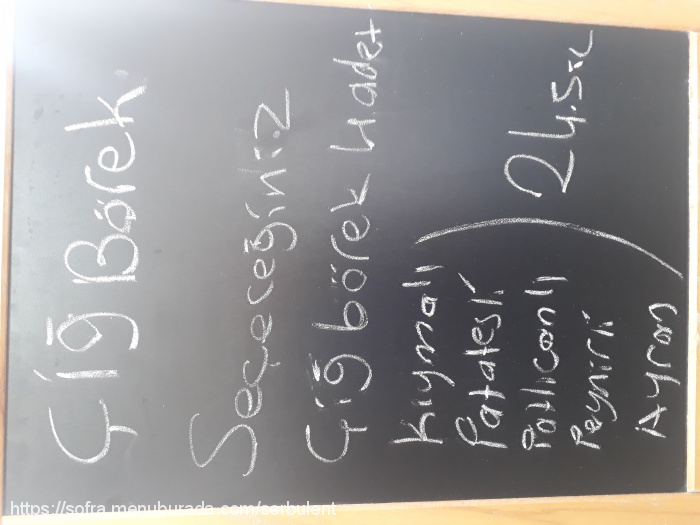 Çiğ Börek
Seçeceğiniz
Çiğ börek 4 adet
Kıymalı
Patatesli
Patlıcanlı
Peynirli
Ayran
24.5
https://sofra.menuburada.com/serbulent